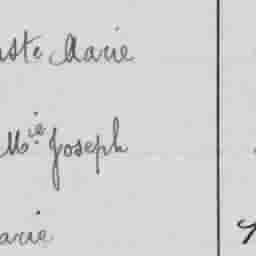 uste Marie
Mie Joseph
arie